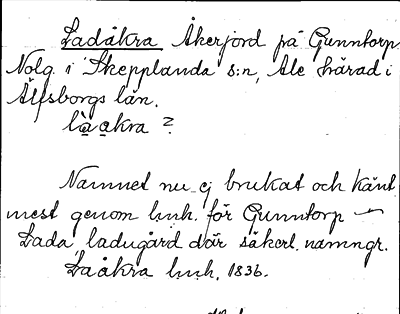 Ladåkra Åkerjord på Gunntorp
Nolg. i Skepplanda s:n, Ale härad i
Älfsborgs län.
la̱a̱kra ?
Namnet nu ej brukat och känt
mest genom lmh. för Gunntorp —
Lada, ladugård där säkerl. namngr.
Laåkra lmh. 1836.